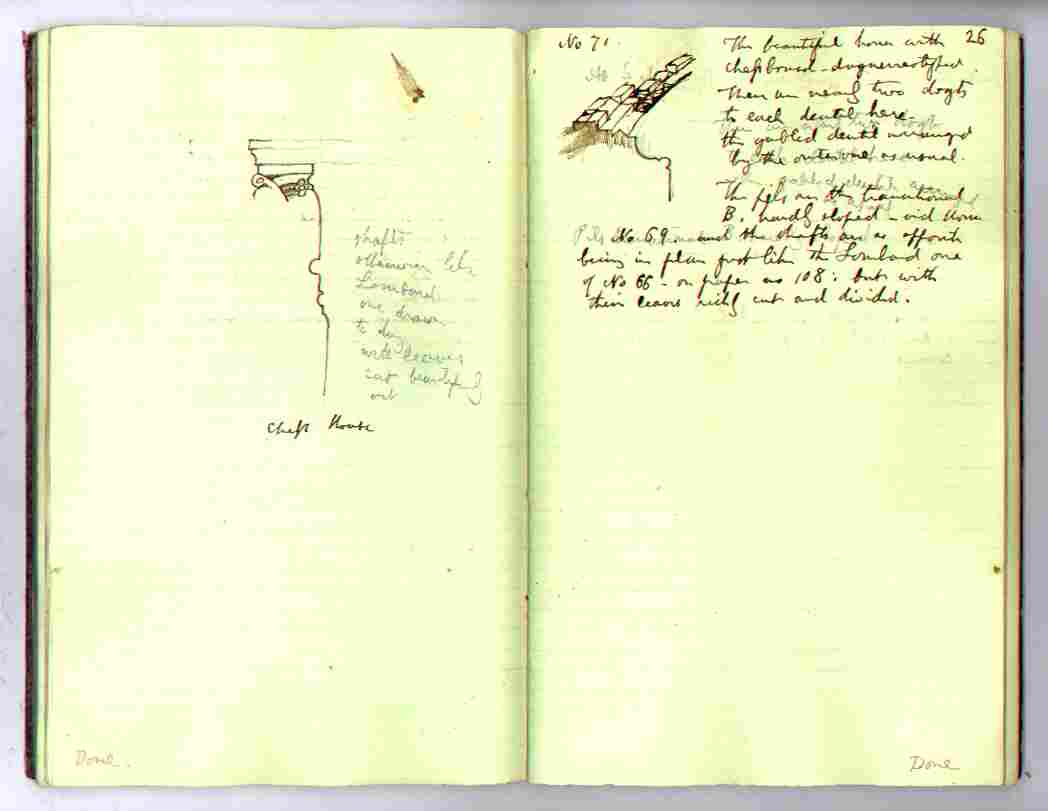 shafts
otherwise like
Lombard
one drawn
to day
with leaves
cut beautifully
out
Chess House
Done.
No 71.
26
The beautiful house with
chessboard - daguerreotyped
There are nearly two dogts
to each dentil here -
the gabled dentil arranged
by the outer one as usual.
The pils are the transitional
B. hardly sloped - vid
No 69 and the shafts are as opposite
being in plan just like the Lombard one
of No 66 - on paper no 108: but with
their leaves richly cut and divided.
Done